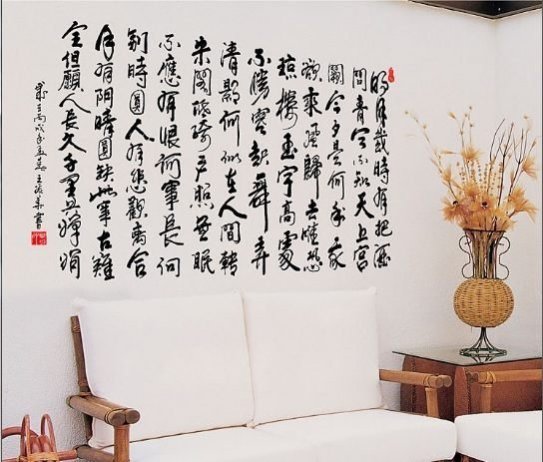 明月幾時有把酒
問青天不知天上宮
闕今夕是何年我
欲乘風歸去惟恐
瓊樓玉宇高處
不勝寒起舞弄
清影何似在人間轉
朱閣低綺戶照無眠
不應有恨何事長向
別時圓人有悲歡離合
月有阴晴圓缺此事古難
全但願人長久千里共嬋娟